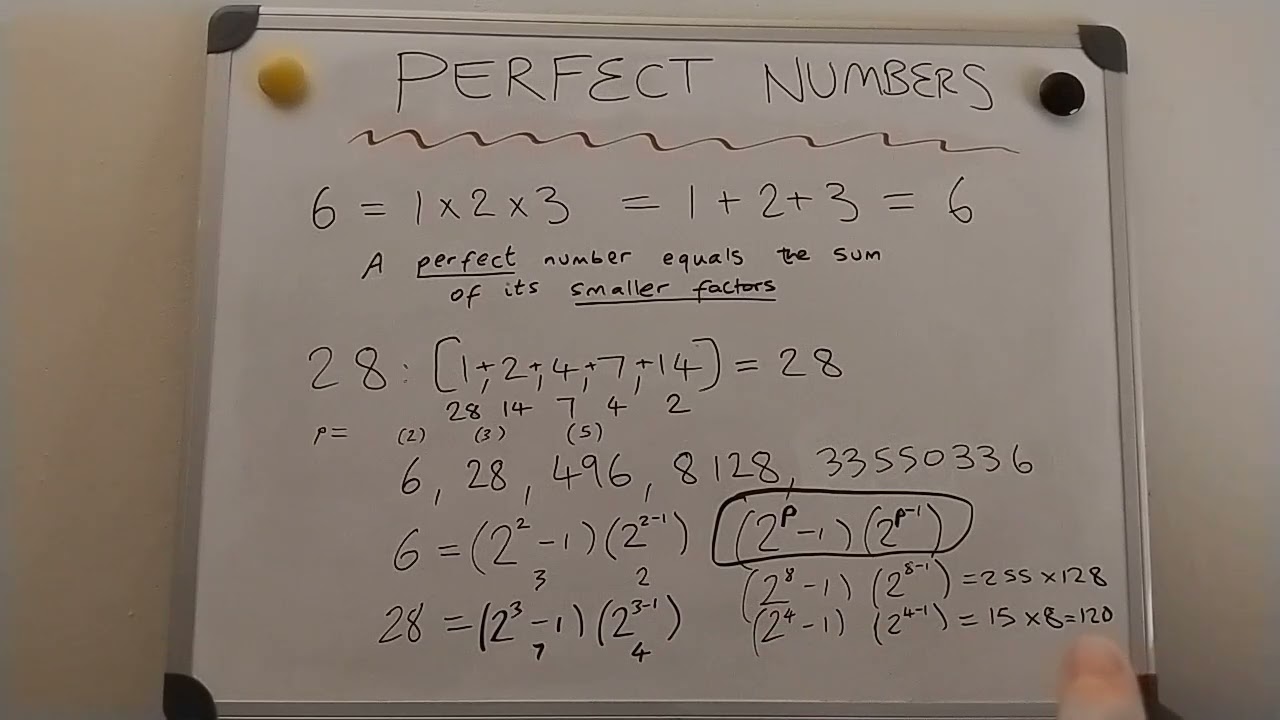 PERFECT NUMBERS
6 = 1 x 2 x 3 = 1 + 2 + 3 = 6
A perfect number equals the sum
of its smaller factors
28 : [1+, 2+, 4,+ 7,+ 14] = 28
28 14 7 4 2
P= (2) (3) (5)
6, 28, 496, 8128, 33550336
6 = (2² - 1)(2²⁻¹) (2ᴾ - 1)(2ᴾ⁻¹)
3 2
(2⁸ - 1) (2⁸⁻¹) = 255 x 128
28 = (2³ - 1)(2³⁻¹) (2⁴ - 1) (2⁴⁻¹) = 15 x 8 = 120
7 4